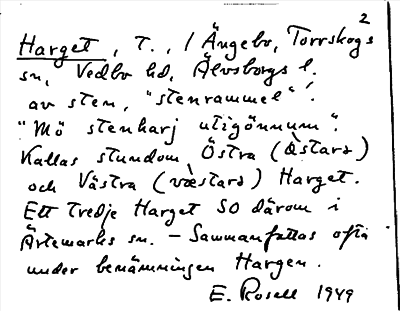 2
Harget, T., i Ängebo, Torrskogs
sn, Vedbo hd, Älvsborgs l.
av sten, "stenrammel".
"Mö stenharj utigönnum".
Kallas stundom Östra (östara)
och Västra (væstara) Harget.
Ett tredje Harget SO därom i
Ärtemarks sn. – Sammanfattas ofta
under benämningen Hargen.
E. Rosell 1949